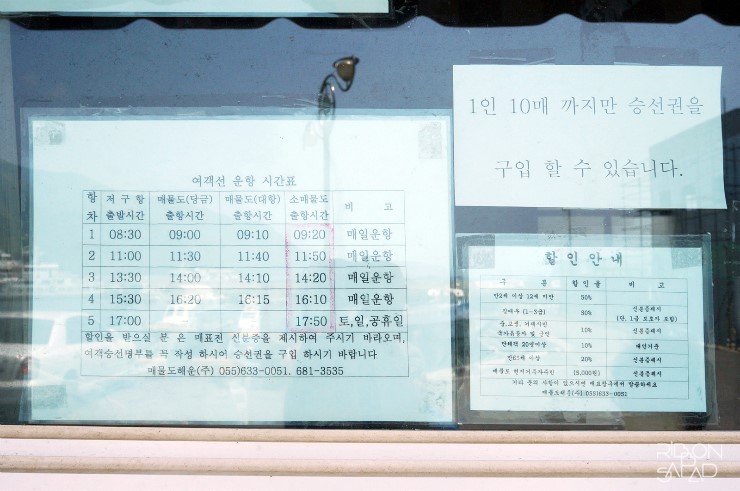 1인 10매 까지만 승선권을
구입 할 수 있습니다.
여객선 운항 시간표
항차 저구항 출발시간 매물도(당금) 출항시간 매물도(대항) 출항시간 소매물도 출항시간 비 고
1 08:30 09:00 09:10 09:20 매일운항
2 11:00 11:30 11:40 11:50 매일운항
3 13:30 14:00 14:10 14:20 매일운항
4 15:30 16:20 16:15 16:10 매일운항
5 17:00 17:50 토,일,공휴일
할인을 받으실 분 은 매표전 신분증을 제시하여 주시기 바라오며,
여객승선명부를 꼭 작성 하시어 승선권을 구입 하시기 바랍니다
매물도해운(주) 055)633-0051. 681-3535
할인안내
구 분 할인율 비 고
만2세 이상 12세 미만 50%
장애우 (1~3급) 50% 신분증제시 (단, 1급 보호자 포함)
중,고생, 거제시민 국가유공자 및 군인 10% 신분증제시
단체객 20명이상 10%
만65세 이상 20% 신분증제시
매물도 현지거주자주민 (5,000원) 신분증제시
기타 문의 사항이 있으시면 매표창구에서 말씀하세요
매물도해운(주) 055)633-0051
RIBBON SALAD